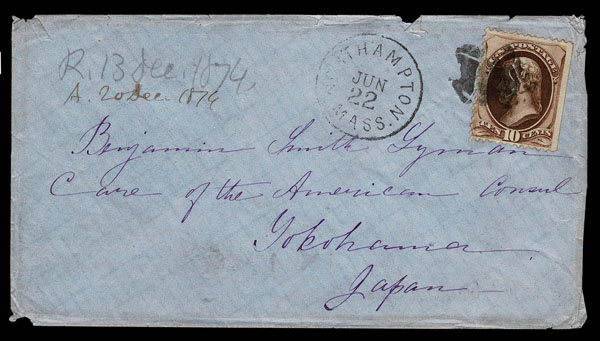 R. 13 Dec. 1874.
A. 20 Dec. 1874
NORTHAMPTON
JUN
22
MASS.
U.S. POSTAGE
TEN 10 CENTS
Benjamin Smith Lyman
Care of the American Consul
Yokohama
Japan